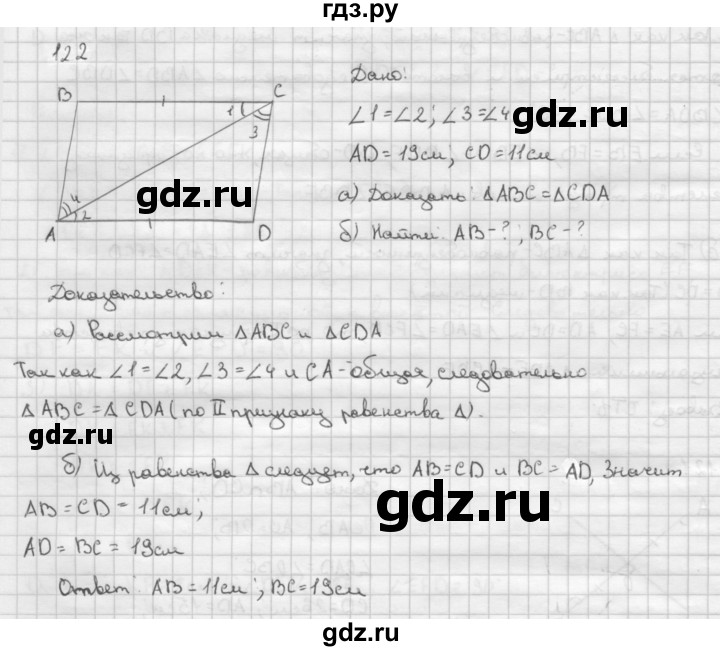 гдз.ру
122
B
C
1
3
4
2
A
D
Дано:
∠1=∠2; ∠3=∠4
gdz.ru
AD=19см; CD=11см
gdz.ru
а) Доказать: △ABC=△CDA
б) Найти: AB-?; BC-?
Доказательство:
а) Рассмотрим △ABC и △CDA
Так как ∠1=∠2, ∠3=∠4 и CA-общая, следовательно
△ABC=△CDA (по II признаку равенства △).
gdz.ru
б) Из равенства △ следует, что AB=CD и BC=AD, Значит
AB=CD=11см;
gdz.ru
AD=BC=19см
Ответ: AB=11см; BC=19см
gdz.ru